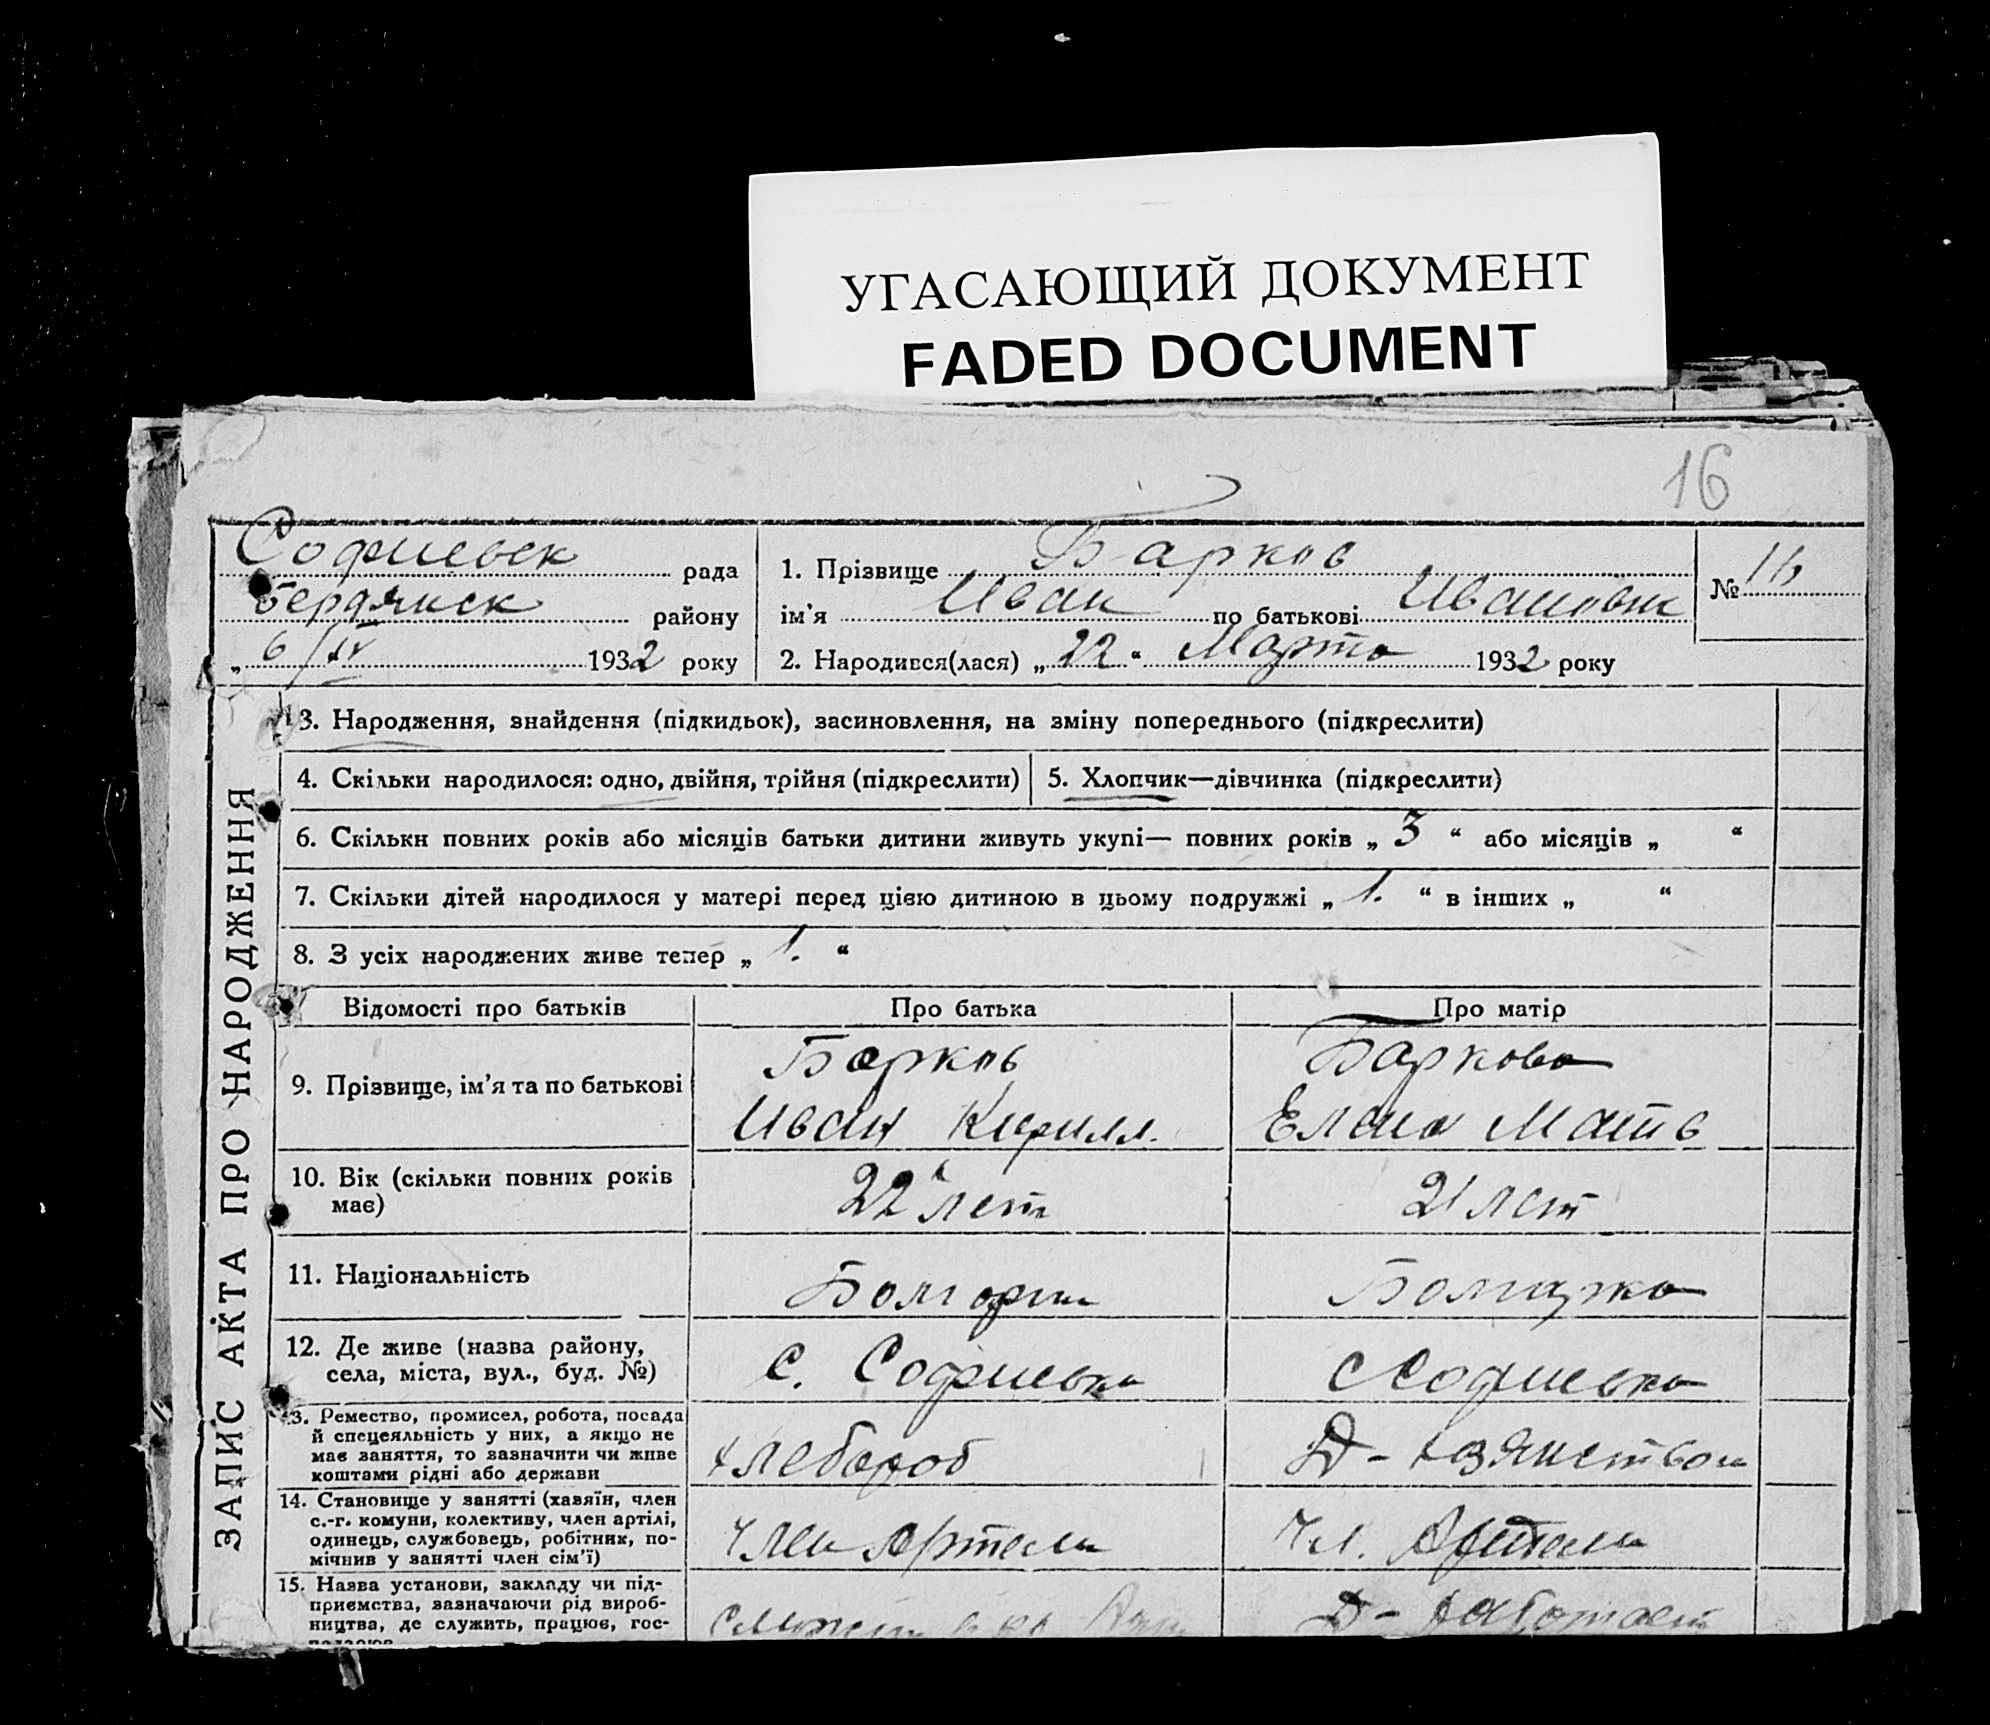 УГАСАЮЩИЙ ДОКУМЕНТ
FADED DOCUMENT
16
Софиевск рада
Бердянск району
„ 6/IV 1932 року
1. Прізвище Барков
ім'я Иван по батькові Иванович
№ 16
2. Народився(лася) „ 22 “ Марта 1932 року
ЗАПИС АКТА ПРО НАРОДЖЕННЯ
3. Народження, знайдення (підкидьок), засиновлення, на зміну попереднього (підкреслити)
4. Скільки народилося: одно, двійня, трійня (підкреслити)
5. Хлопчик—дівчинка (підкреслити)
6. Скільки повних років або місяців батьки дитини живуть укупі— повних років „ 3 “ або місяців „ “
7. Скільки дітей народилося у матері перед цією дитиною в цьому подружжі „ 1. “ в інших „ “
8. З усіх народжених живе тепер „ 1. “
Відомості про батьків
Про батька
Про матір
9. Прізвище, ім'я та по батькові
Барков
Иван Кирилл.
Баркова
Елена Матв
10. Вік (скільки повних років
має)
22 лет
21 лет
11. Національність
Болгарин
Болгарка
12. Де живе (назва району,
села, міста, вул., буд. №)
с. Софиевка
с Софиевка
13. Ремество, промисел, робота, посада
й спецеяльність у них, а якщо не
має заняття, то зазначити чи живе
коштами рідні або держави
хлебороб
Д-хозяйством
14. Становище у занятті (хазяїн, член
с.-г. комуни, колективу, член артілі,
одинець, службовець, робітник, по-
мічнив у занятті член сім'ї)
член Артели
чл. Артели
15. Назва установи, закладу чи під-
приємства, зазначаючи рід вироб-
ництва, де служить, працює, гос-
Д- работает